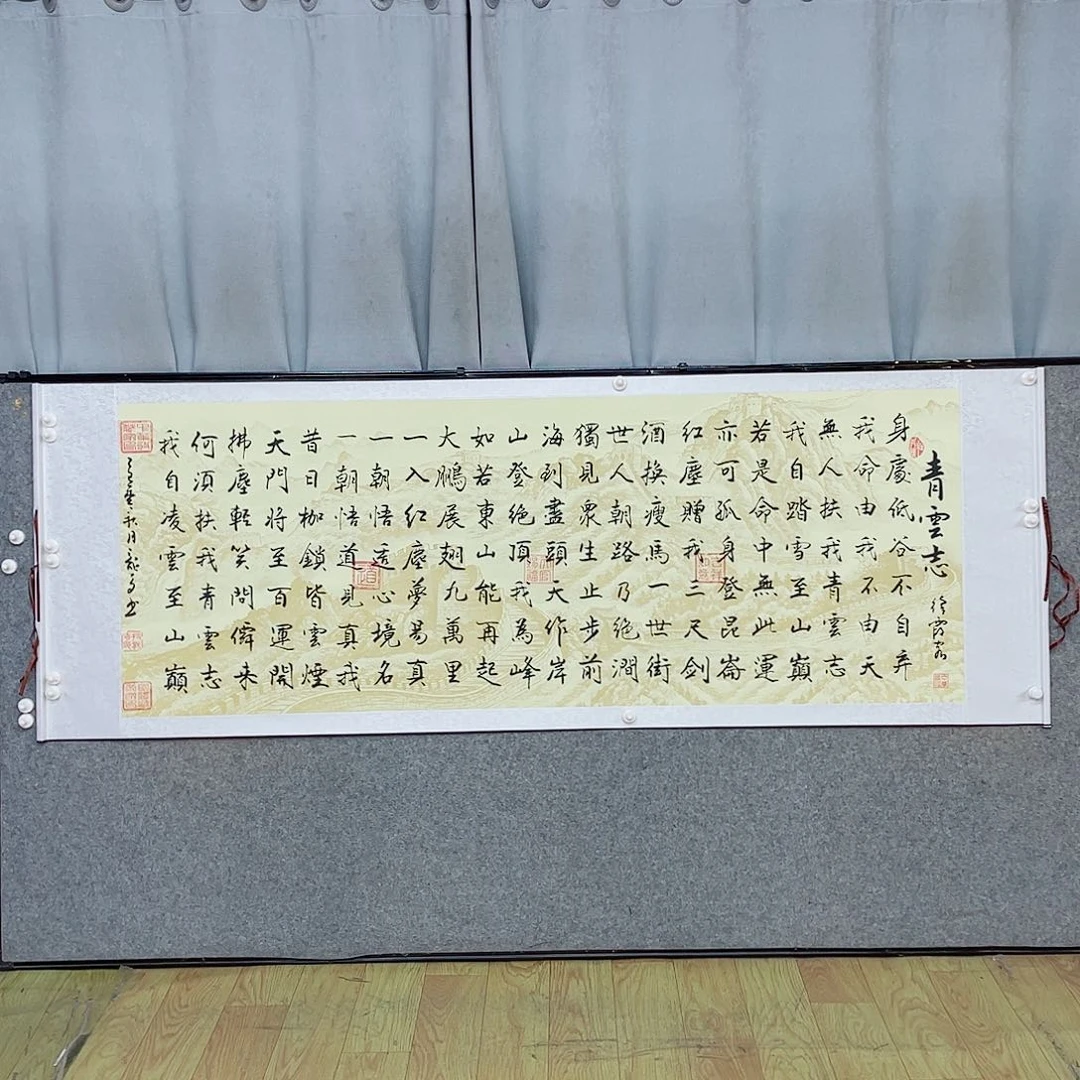 青雲志
徐霞客
身處低谷不自弃
我命由我不由天
無人扶我青雲志
我自踏雪至山巔
若是命中無此運
亦可孤身登昆崙
红塵贈我三尺劍
酒換瘦馬一世街
世人朝路乃絕澗
獨見眾生止步前
海到盡頭天作岸
山登绝頂我為峰
如若東山能再起
大鵬展翅九萬里
一入红塵夢易真
一朝悟透心境名
一朝悟道見真我
昔日枷鎖皆雲煙
天門將至百運開
拂塵輕笑問僊来
何須扶我青雲志
我自凌雲至山巔
秋月